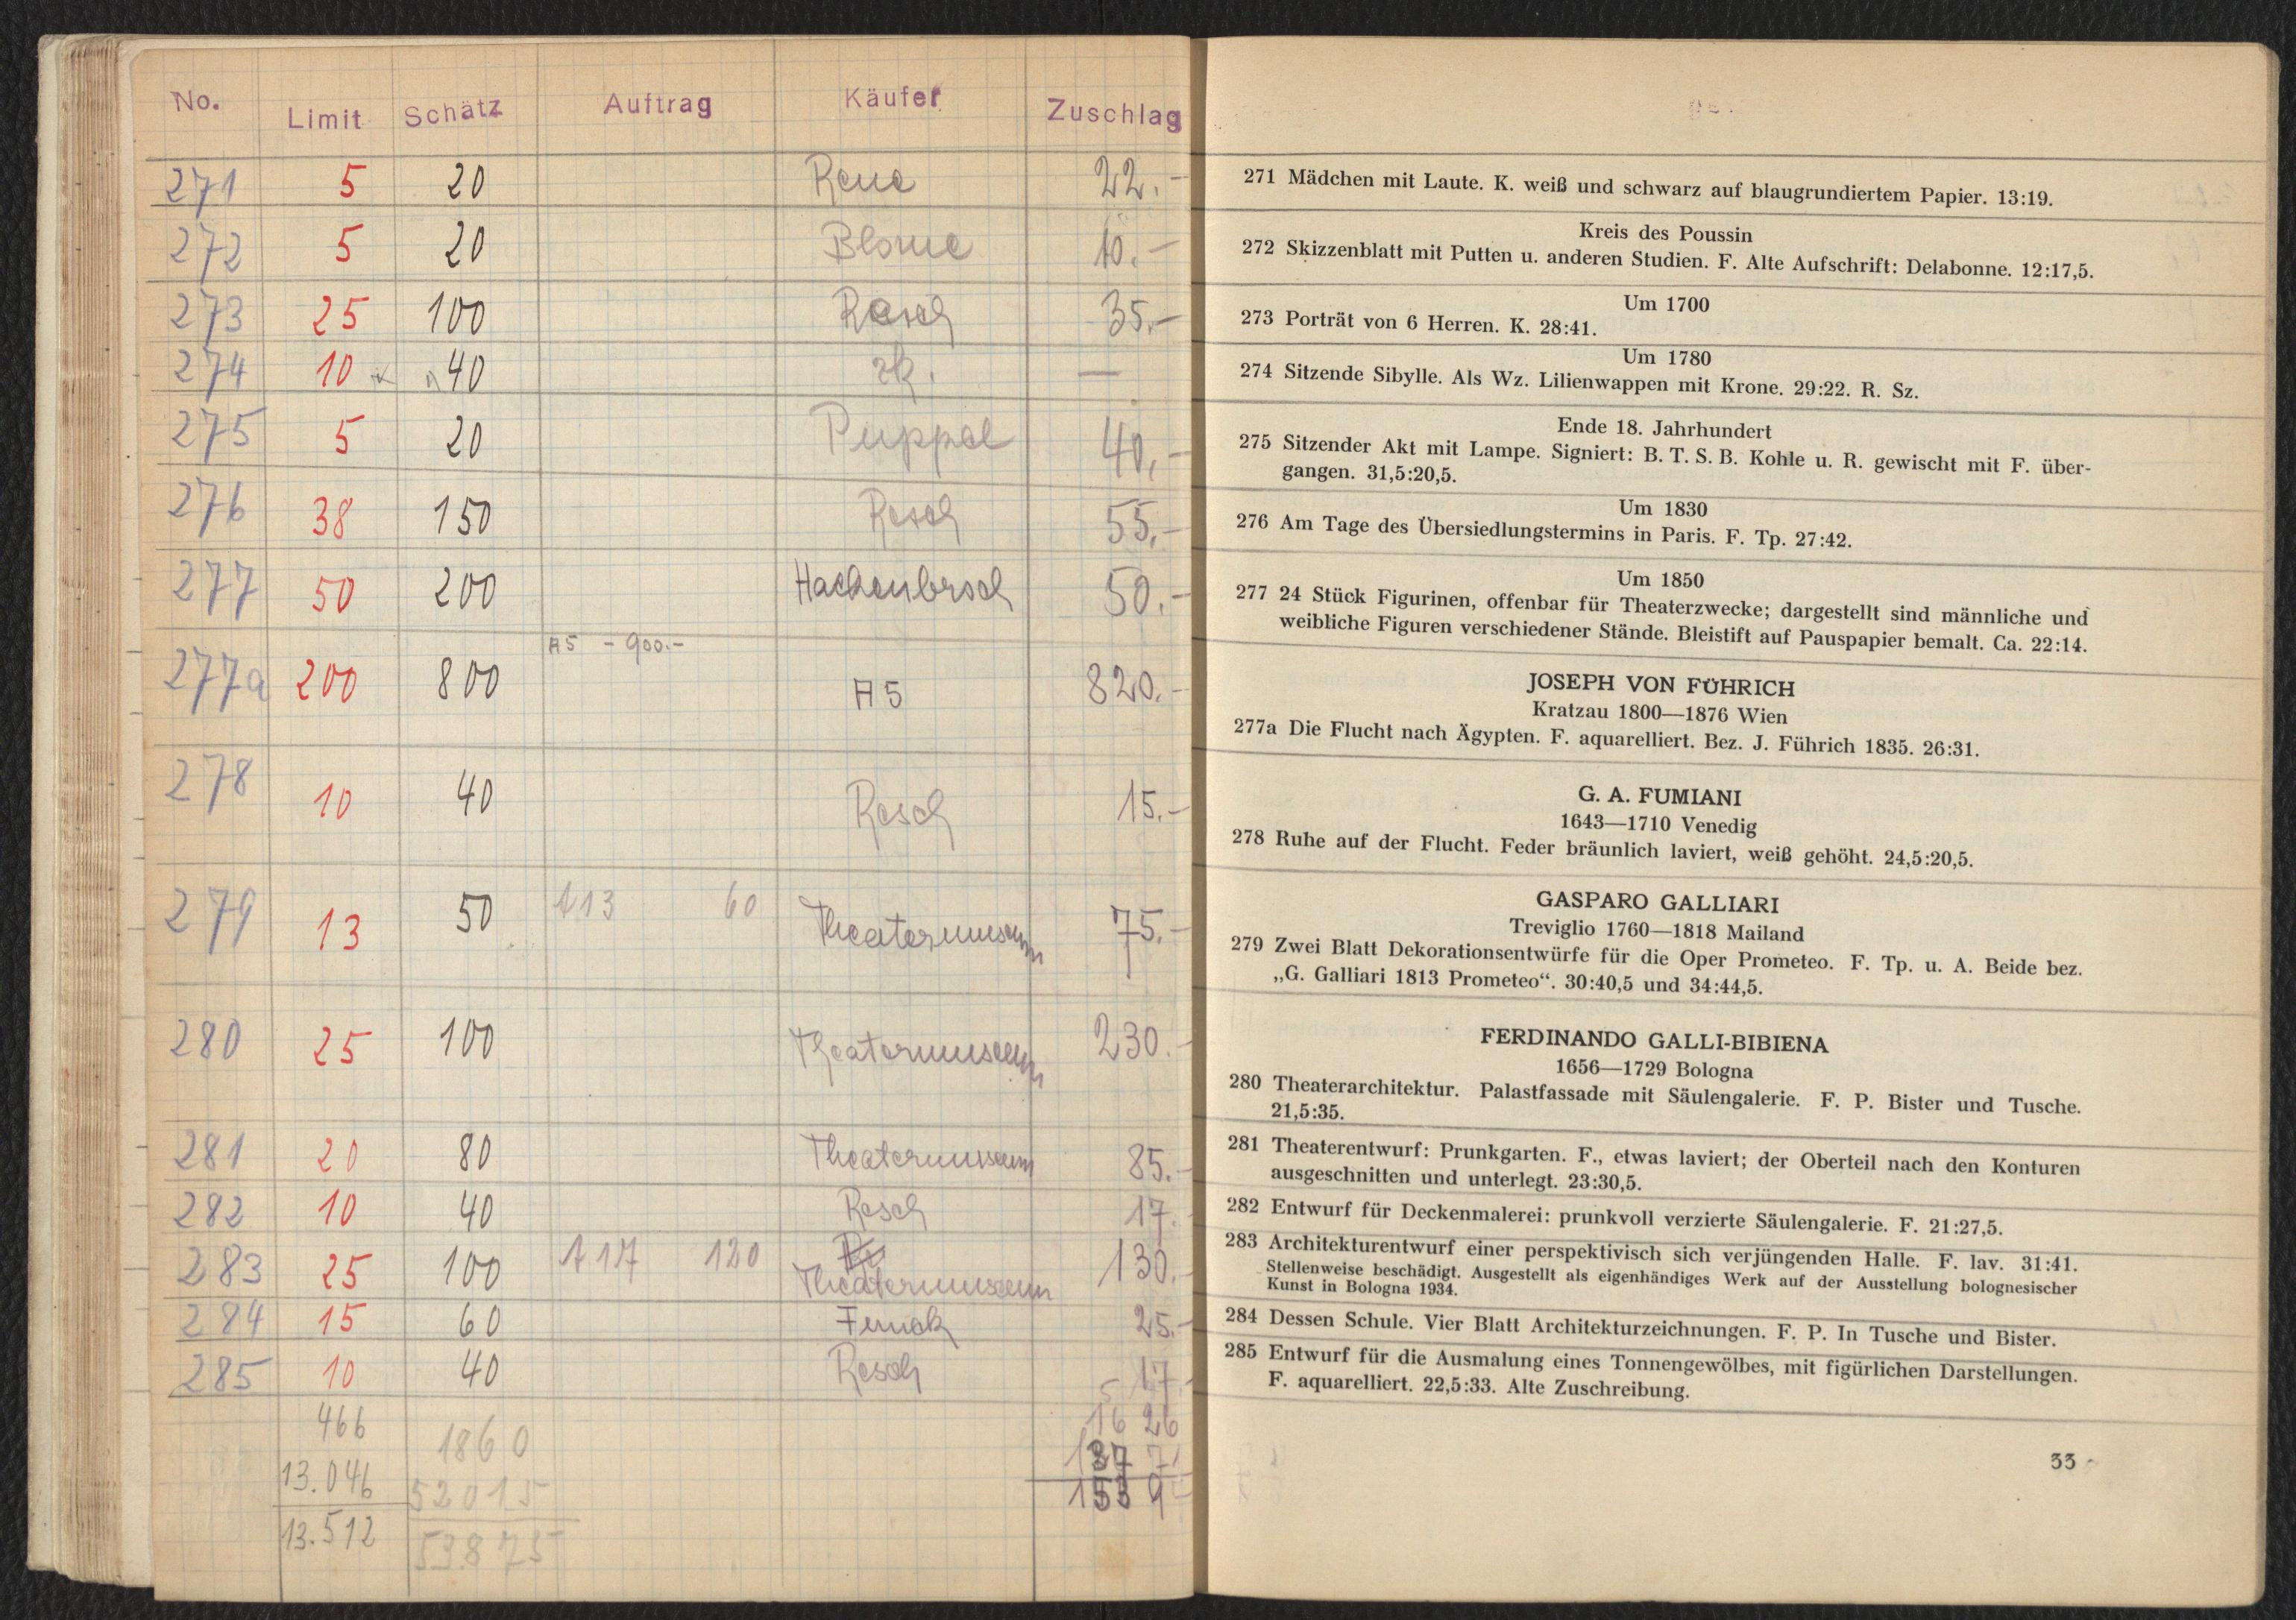 No. Limit Schätz Auftrag Käufer Zuschlag
271 5 20 22.-
272 5 20 Blome 10.-
273 25 100 Resch 35.-
274 10 x 40 zk. —
275 5 20 Puppel 40,-
276 38 150 Resch 55,-
277 50 200 50.-
A5 - 900.-
277a 200 800 A5 820.-
278 10 40 Resch 15.-
279 13 50 A13 60 Theatermuseum 75.-
280 25 100 Theatermuseum 230.-
281 20 80 Theatermuseum 85.-
282 10 40 Resch 17.
283 25 100 A17 120 Theatermuseum 130.
284 15 60 25.-
285 10 40 Resch 17.
466 1860 16 26
13.046 52015
13.512 53875
271 Mädchen mit Laute. K. weiß und schwarz auf blaugrundiertem Papier. 13:19.
Kreis des Poussin
272 Skizzenblatt mit Putten u. anderen Studien. F. Alte Aufschrift: Delabonne. 12:17,5.
Um 1700
273 Porträt von 6 Herren. K. 28:41.
Um 1780
274 Sitzende Sibylle. Als Wz. Lilienwappen mit Krone. 29:22. R. Sz.
Ende 18. Jahrhundert
275 Sitzender Akt mit Lampe. Signiert: B. T. S. B. Kohle u. R. gewischt mit F. über-
gangen. 31,5:20,5.
Um 1830
276 Am Tage des Übersiedlungstermins in Paris. F. Tp. 27:42.
Um 1850
277 24 Stück Figurinen, offenbar für Theaterzwecke; dargestellt sind männliche und
weibliche Figuren verschiedener Stände. Bleistift auf Pauspapier bemalt. Ca. 22:14.
JOSEPH VON FÜHRICH
Kratzau 1800—1876 Wien
277a Die Flucht nach Ägypten. F. aquarelliert. Bez. J. Führich 1835. 26:31.
G. A. FUMIANI
1643—1710 Venedig
278 Ruhe auf der Flucht. Feder bräunlich laviert, weiß gehöht. 24,5:20,5.
GASPARO GALLIARI
Treviglio 1760—1818 Mailand
279 Zwei Blatt Dekorationsentwürfe für die Oper Prometeo. F. Tp. u. A. Beide bez.
„G. Galliari 1813 Prometeo“. 30:40,5 und 34:44,5.
FERDINANDO GALLI-BIBIENA
1656—1729 Bologna
280 Theaterarchitektur. Palastfassade mit Säulengalerie. F. P. Bister und Tusche.
21,5:35.
281 Theaterentwurf: Prunkgarten. F., etwas laviert; der Oberteil nach den Konturen
ausgeschnitten und unterlegt. 23:30,5.
282 Entwurf für Deckenmalerei: prunkvoll verzierte Säulengalerie. F. 21:27,5.
283 Architekturentwurf einer perspektivisch sich verjüngenden Halle. F. lav. 31:41.
Stellenweise beschädigt. Ausgestellt als eigenhändiges Werk auf der Ausstellung bolognesischer
Kunst in Bologna 1934.
284 Dessen Schule. Vier Blatt Architekturzeichnungen. F. P. In Tusche und Bister.
285 Entwurf für die Ausmalung eines Tonnengewölbes, mit figürlichen Darstellungen.
F. aquarelliert. 22,5:33. Alte Zuschreibung.
33